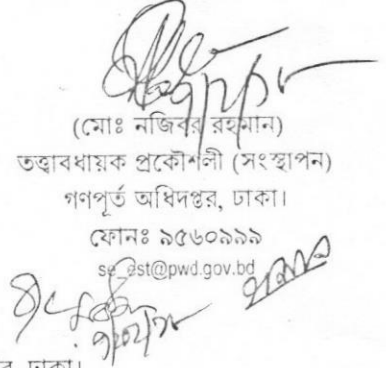 (মোঃ নজিবর রহমান)
তত্ত্বাবধায়ক প্রকৌশলী (সংস্থাপন)
গণপূর্ত অধিদপ্তর, ঢাকা।
ফোনঃ ৯৫৬০৯৯৯
se_est@pwd.gov.bd
ঢাকা।